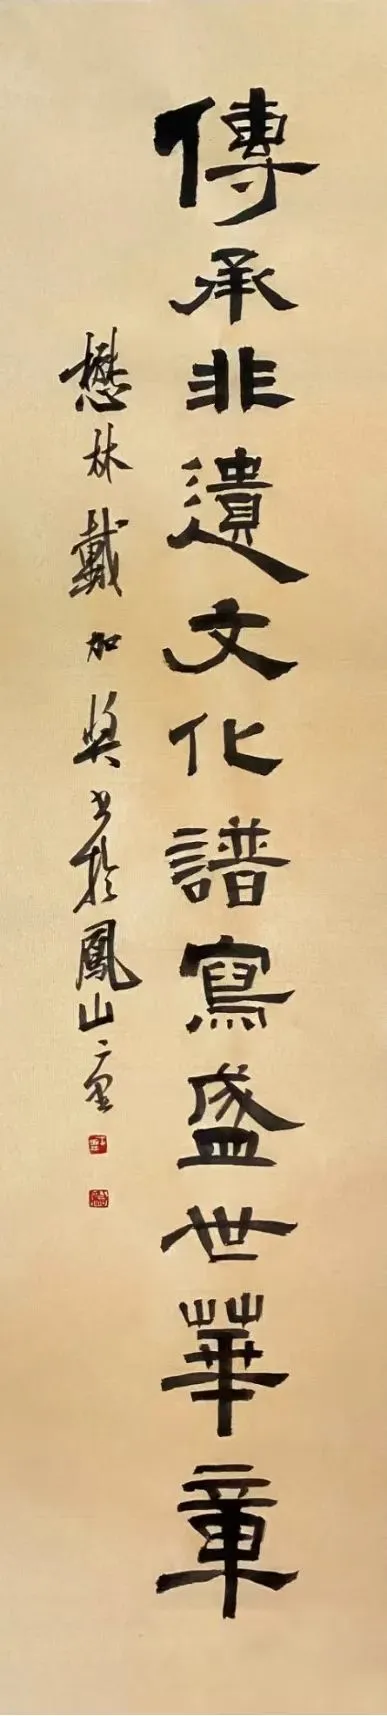 傳承非遺文化譜寫盛世華章
懋林戴加獎書於鳳山